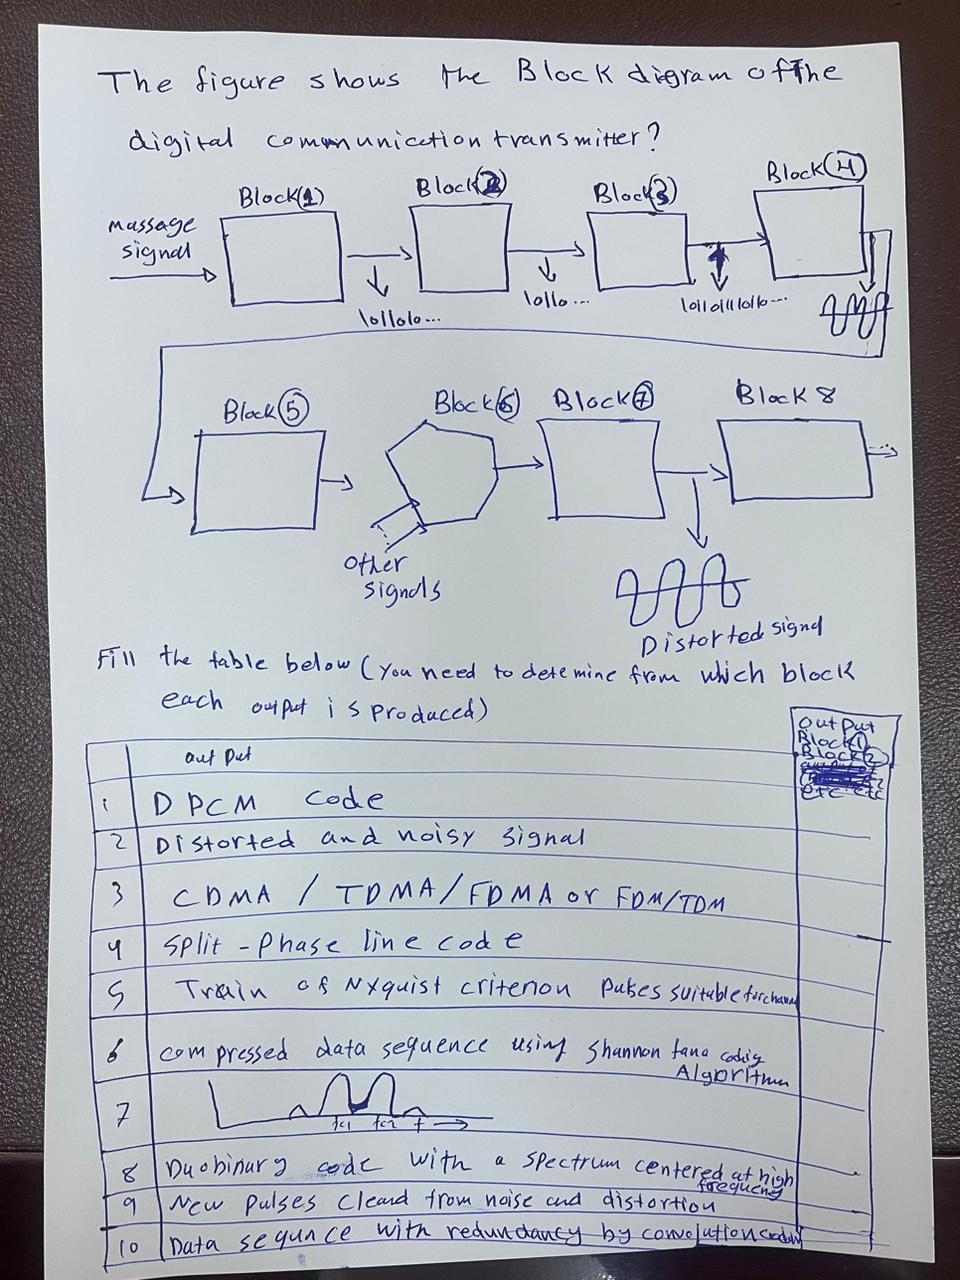 The figure shows the Block digram of the
digital communiction transmitter?
Block(1)
Block(2)
Block(3)
Block(4)
massage
signal
1011010...
10110...
101101110110...
Block(5)
Block(6)
Block(7)
Block 8
other
signals
Distorted signal
Fill the table below (you need to detemine from which block
each output is produced)
output
output
Block(1)
Block(2)
etc etc
1 DPCM code
2 Distorted and noisy signal
3 CDMA / TDMA/FDMA or FDM/TDM
4 Split-Phase line code
5 Train of Nyquist criterion pulses suitable for channel
6 compressed data sequence using shannon fana codig
Algorithm
7 fc1 fc2 f
8 Duobinary code with a spectrum centered at high
frequency
9 New pulses cleard from noise and distortion
10 Data sequnce with redundancy by convolution